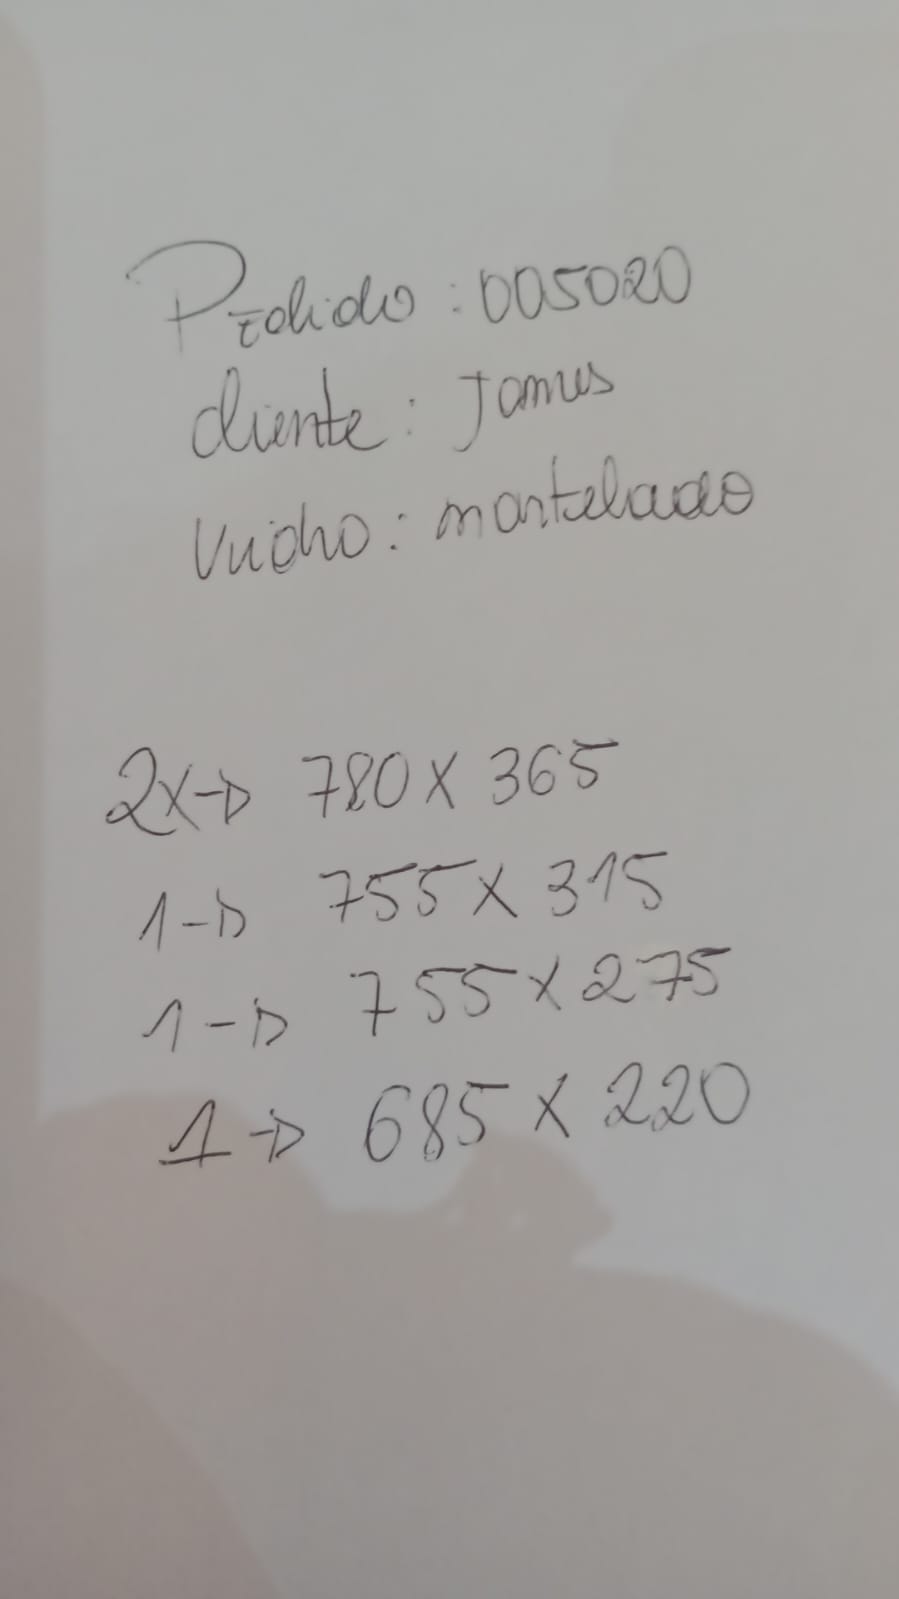 Pedido: 005020
cliente: James
Vidro: martelado
2x→ 780 x 365
1→ 755 x 315
1→ 755 x 275
1→ 685 x 220